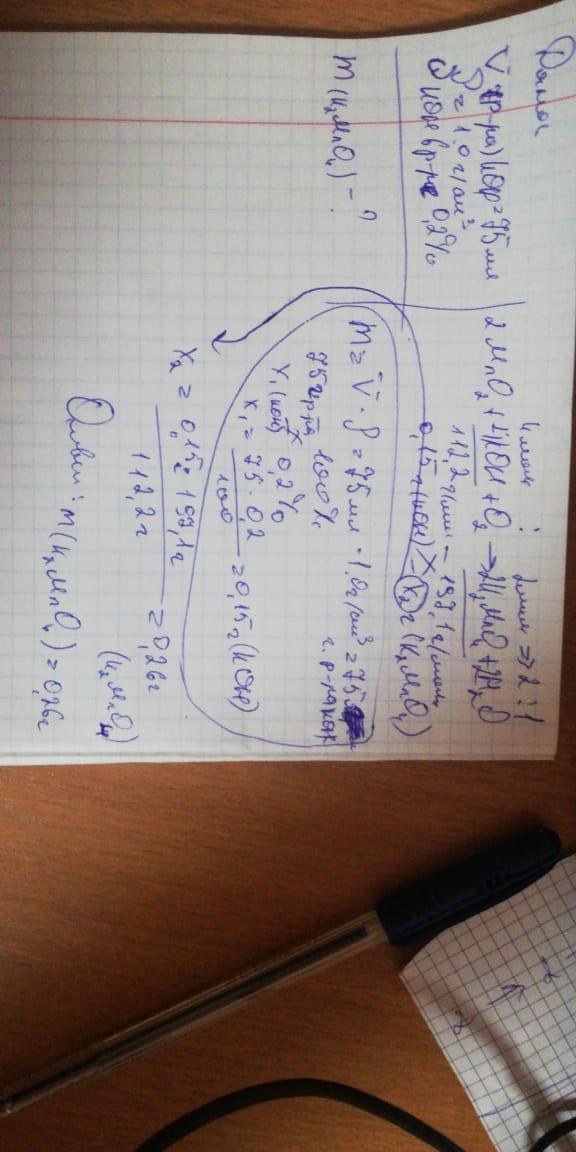 Дано:
V(р-ра)KOH = 75 мл
ρ = 1,0 г/см³
ω KOH в р-ре 0,2%
m(K₂MnO₄) - ?
4 моль : 2 моль ⇒ 2:1
2MnO₂ + 4KOH + O₂ → 2K₂MnO₄ + 2H₂O
112,2 г/моль - 197,1 г/моль
0,15 г (KOH) - x₂ г (K₂MnO₄)
m = V · ρ = 75 мл · 1,0 г/см³ = 75
г. р-ра KOH
75 г р-ра 100%
x₁(KOH) 0,2%
x₁ = 75 · 0,2 / 100 = 0,15 г (KOH)
x₂ = 0,15 г · 197,1 г / 112,2 г = 0,26 г
(K₂MnO₄)
Ответ: m(K₂MnO₄) = 0,26 г